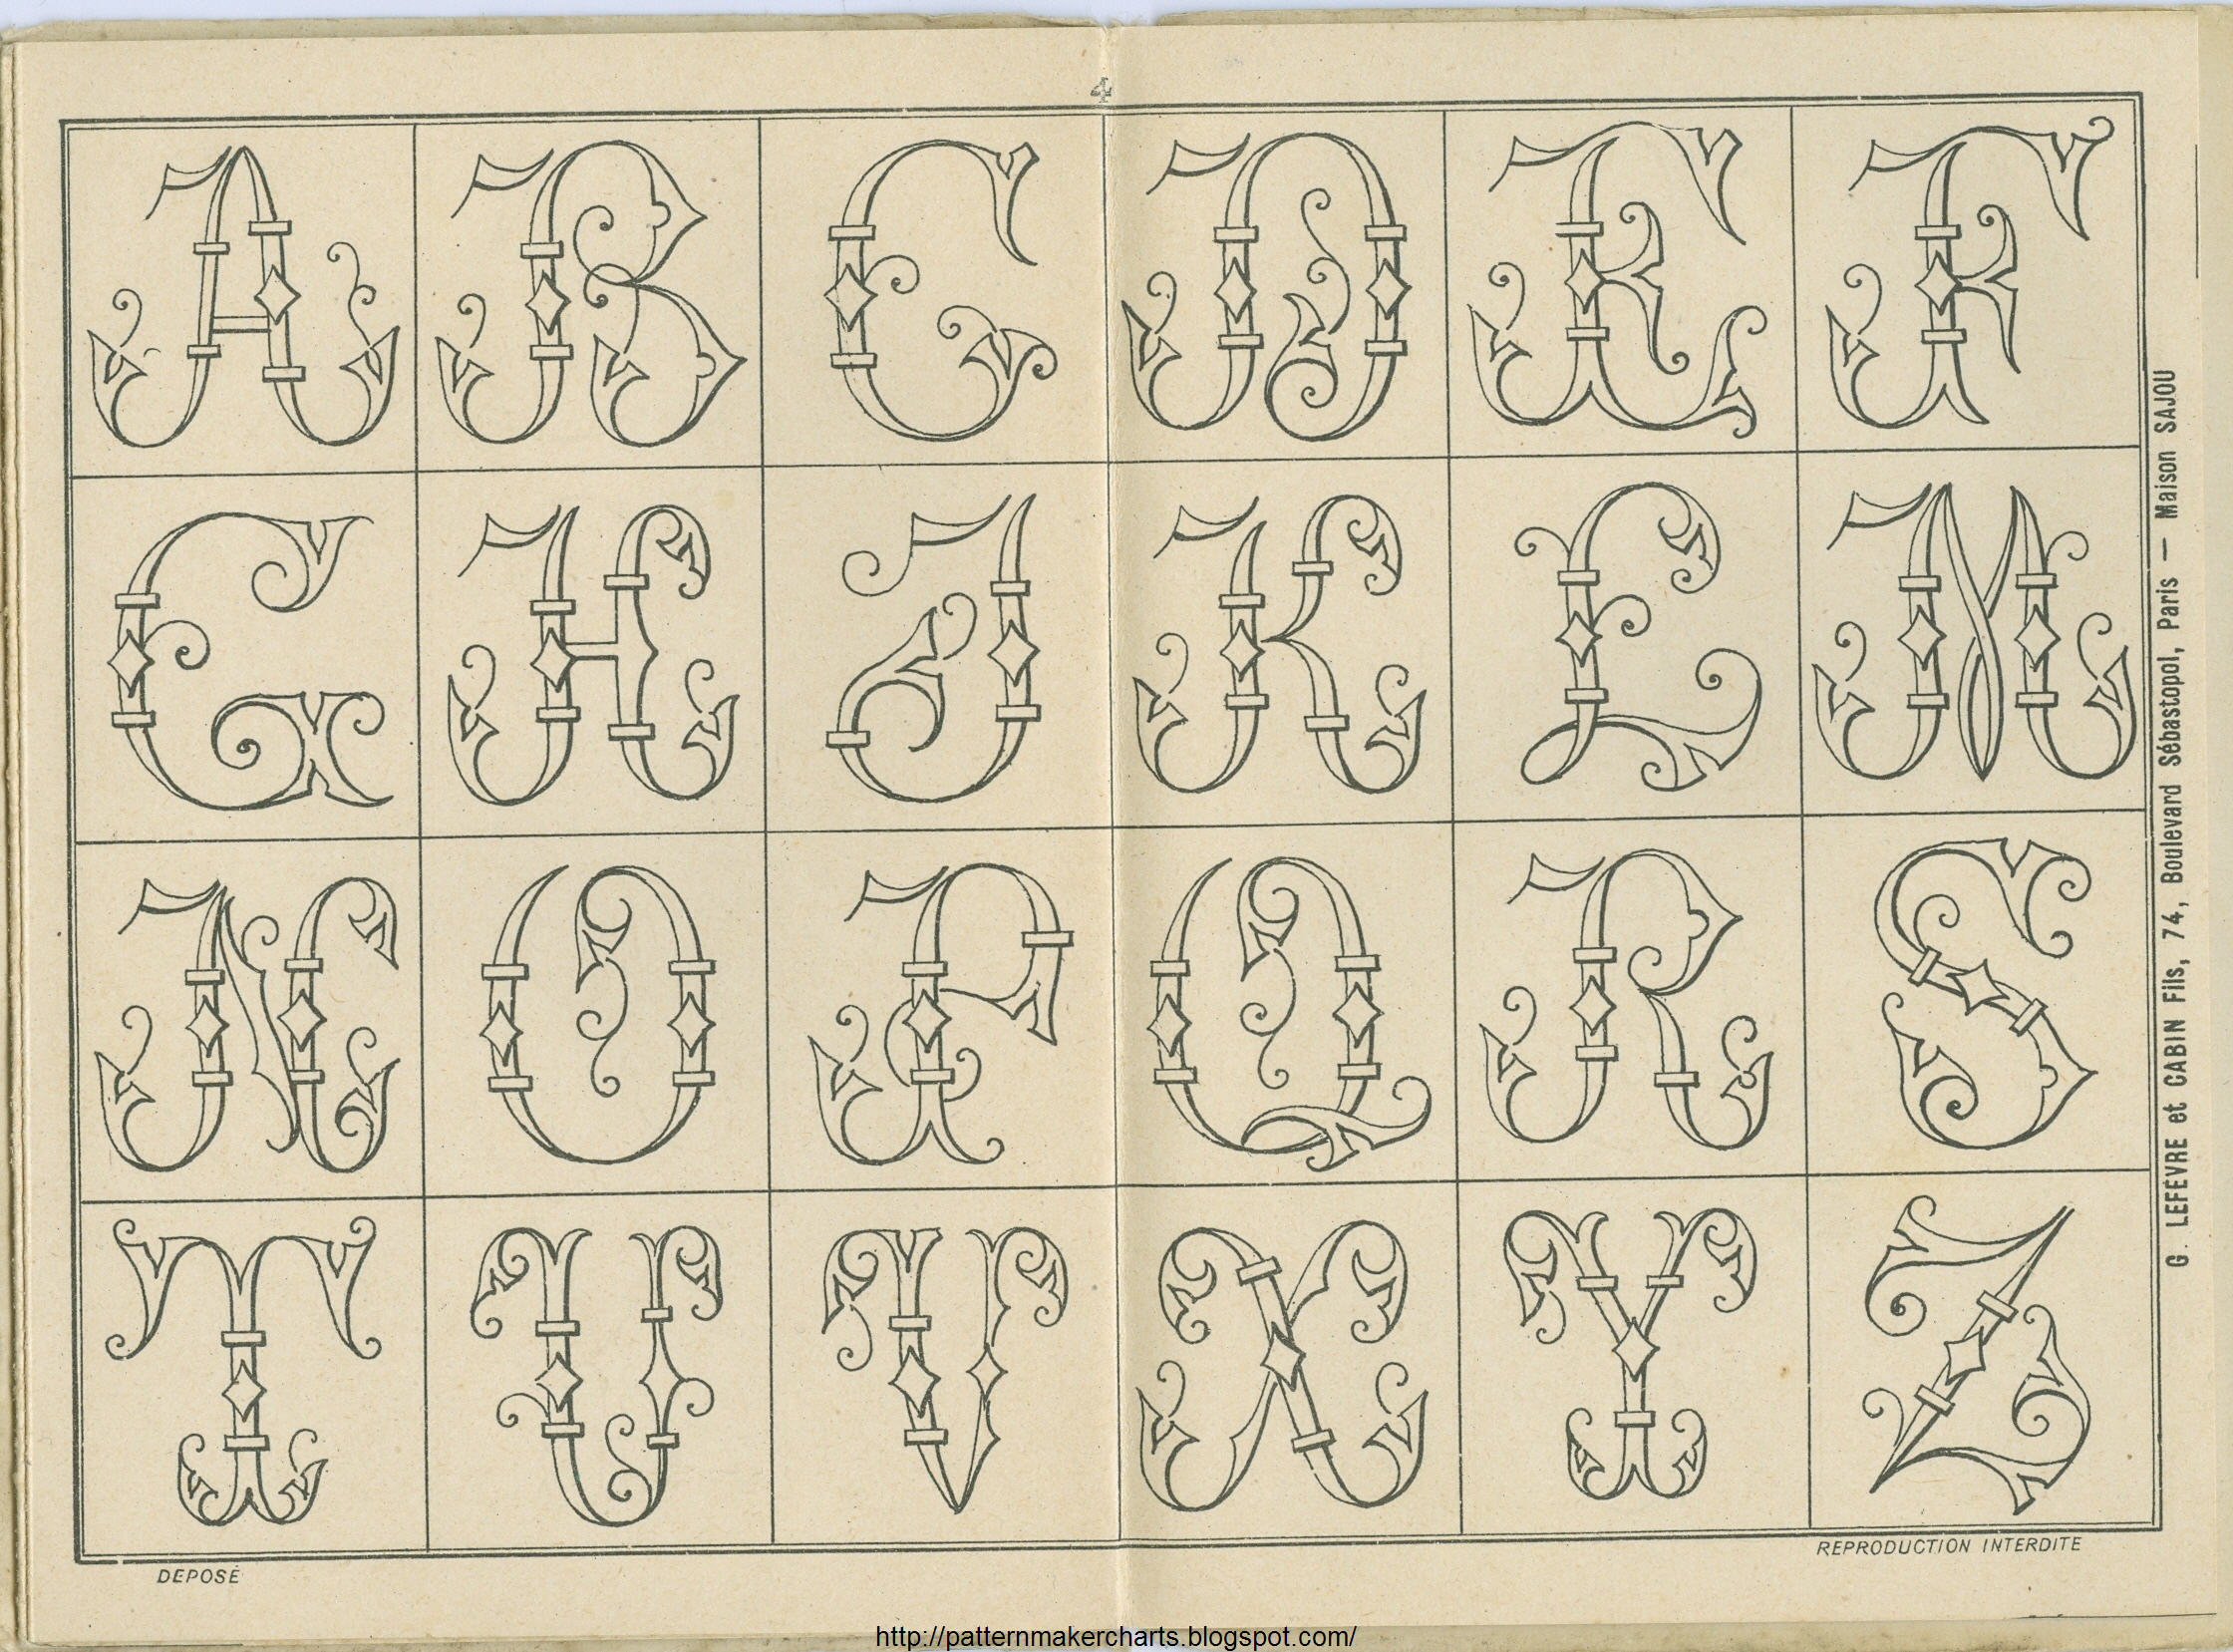 4
A B C D E F
G H J K L M
N O P Q R S
T U V X Y Z
G. LEFÈVRE et CABIN Fils, 74, Boulevard Sébastopol, Paris — Maison SAJOU
DEPOSÉ
REPRODUCTION INTERDITE
http://patternmakercharts.blogspot.com/